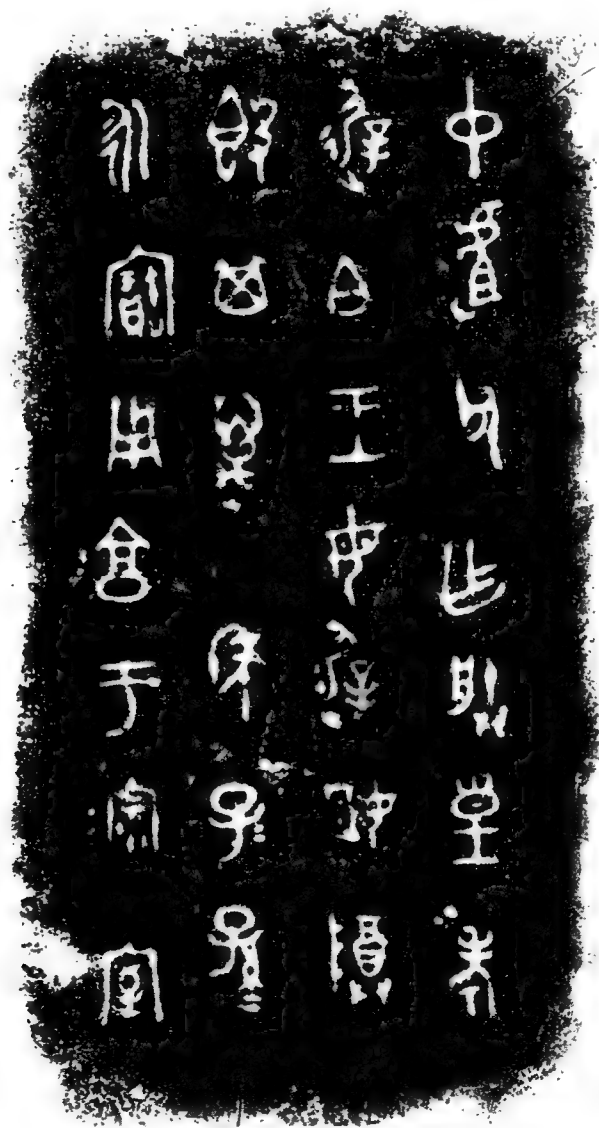 中父乍朕皇考
遟白王母遟姬尊
𣪘其萬年子=孫=
永寶用亯于宗室